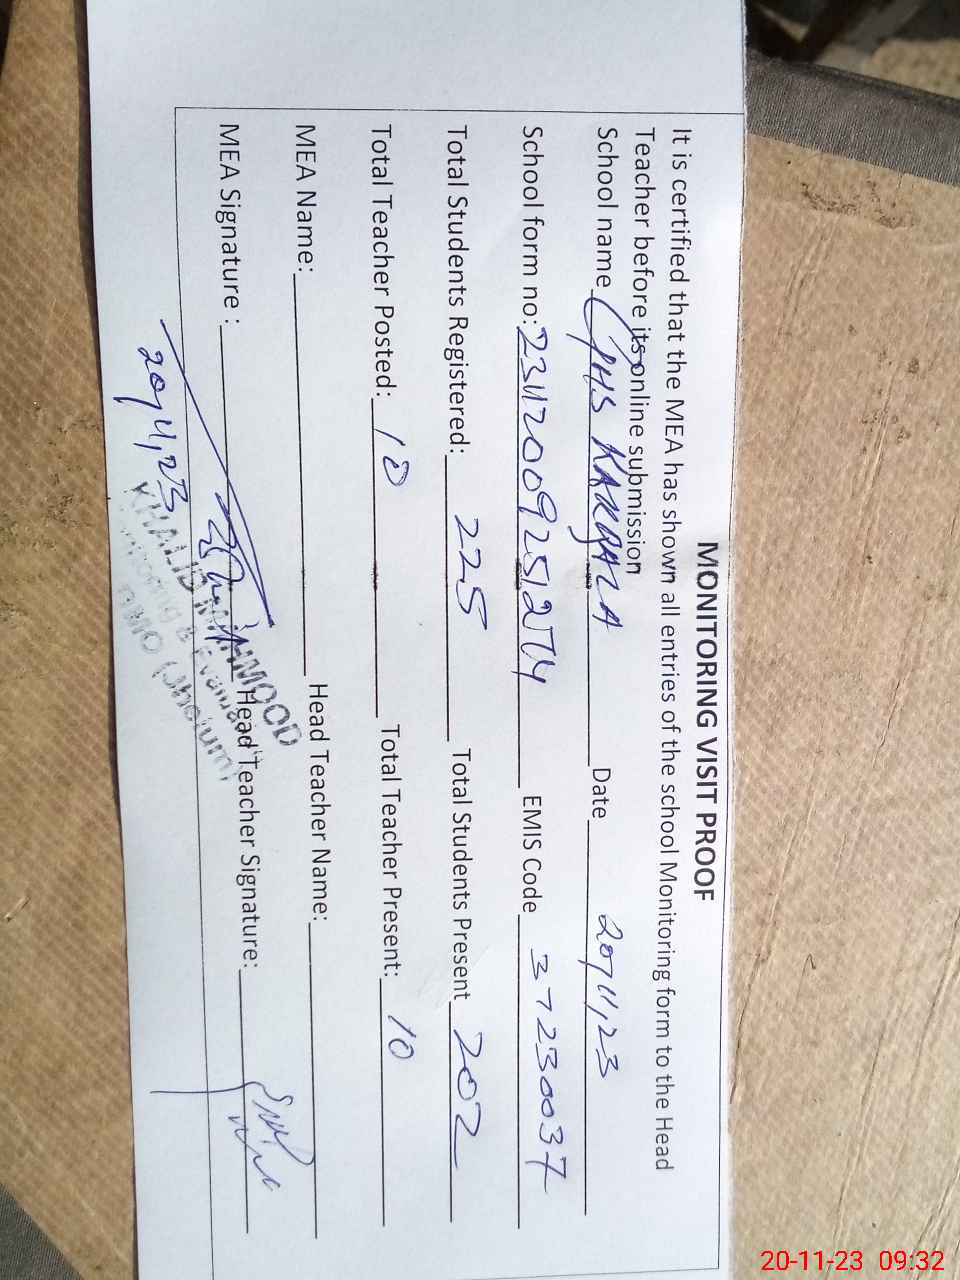 MONITORING VISIT PROOF
It is certified that the MEA has shown all entries of the school Monitoring form to the Head
Teacher before its online submission
School name GHS KARYALA Date 20/11/23
School form no: EMIS Code 37230037
Total Students Registered: 225 Total Students Present 202
Total Teacher Posted: 10 Total Teacher Present: 10
MEA Name: Head Teacher Name:
MEA Signature : Head Teacher Signature:
20/11/23
KHALID MAHMOOD
Monitoring & Evaluation
DMO (Jhelum)
20-11-23 09:32